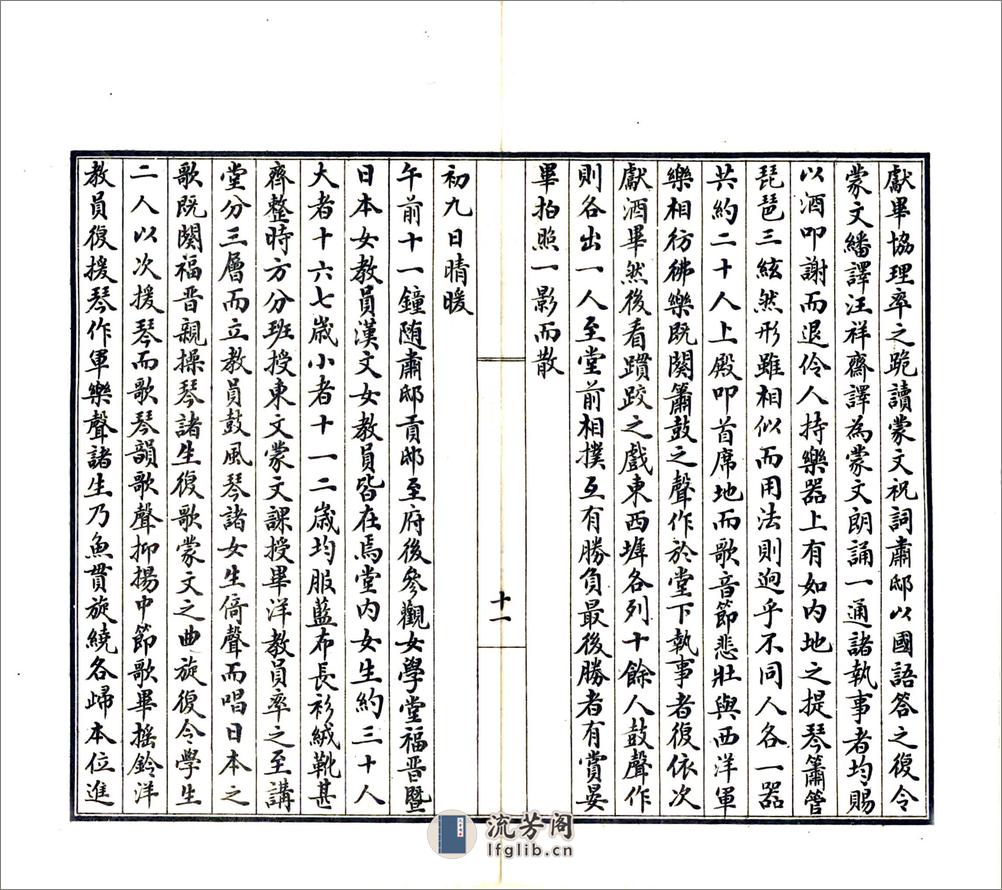 獻畢協理率之跪讀蒙文祝詞肅邸以國語答之復令
蒙文繙譯汪祥齋譯為蒙文朗誦一通諸執事者均賜
以酒叩謝而退伶人持樂器上有如內地之提琴簫管
琵琶三絃然形雖相似而用法則迥乎不同人各一器
共約二十人上殿叩首席地而歌音節悲壯與西洋軍
樂相彷彿樂既闋簫鼓之聲作於堂下執事者復依次
獻酒畢然後看躓跤之戲東西墀各列十餘人鼓聲作
則各出一人至堂前相撲互有勝負最後勝者有賞宴
畢拍照一影而散
初九日晴暖
午前十一鐘随肅邸貢邸至府後參觀女學堂福晋暨
日本女教員漢文女教員皆在焉堂內女生約三十人
大者十六七歲小者十一二歲均服藍布長衫絨靴甚
齊整時方分班授東文蒙文課授畢洋教員率之至講
堂分三層而立教員鼓風琴諸女生倚聲而唱日本之
歌既闋福晋親操琴諸生復歌蒙文之曲旋復令學生
二人以次援琴而歌琴韻歌聲抑揚中節歌畢搖鈴洋
教員復援琴作軍樂聲諸生乃魚貫旋繞各歸本位進
十一
流芳阁
lfglib.cn